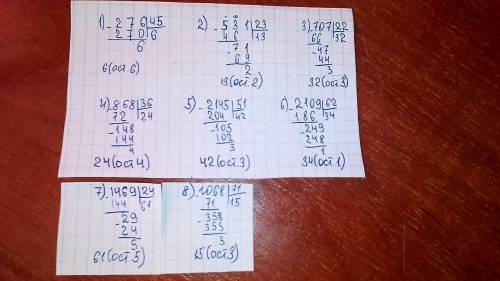 1) -276|45
270|6
6
6(ост.6)
2) -531|23
46|13
-71
69
2
13(ост.2)
3) -707|22
66|32
-47
44
3
32(ост3)
4) -868|36
72|24
-148
144
4
24(ост4)
5) -2145|51
204|42
-105
102
3
42(ост.3)
6) -2109|62
186|34
-249
248
1
34(ост1)
7) -1469|24
144|61
-29
24
5
61(ост.5)
8) -1068|71
71|15
-358
355
3
15(ост3)